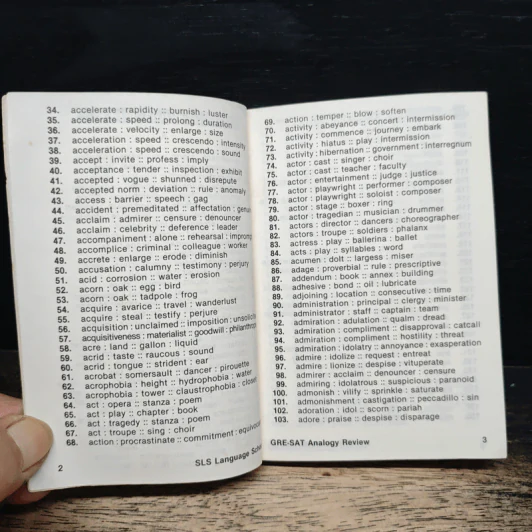 34. accelerate : rapidity :: burnish : luster
35. accelerate : speed :: prolong : duration
36. accelerate : velocity :: enlarge : size
37. acceleration : speed :: crescendo : intensity
38. acceleration : speed :: crescendo : sound
39. accept : invite :: profess : imply
40. acceptance : tender :: inspection : exhibit
41. accepted : vogue :: shunned : disrepute
42. accepted norm : deviation :: rule : anomaly
43. access : barrier :: speech : gag
44. accident : premeditated :: affectation :
45. acclaim : admirer :: censure : denouncer
46. acclaim : celebrity :: deference : leader
47. accompaniment : alone :: rehearsal :
48. accomplice : criminal :: colleague : worker
49. accrete : enlarge :: erode : diminish
50. accusation : calumny :: testimony : perjury
51. acid : corrosion :: water : erosion
52. acorn : oak :: egg : bird
53. acorn : oak :: tadpole : frog
54. acquire : avarice :: travel : wanderlust
55. acquire : steal :: testify : perjure
56. acquisition : unclaimed :: imposition :
57. acquisitiveness : materialist :: goodwill :
58. acre : land :: gallon : liquid
59. acrid : taste :: raucous : sound
60. acrid : tongue :: strident : ear
61. acrobat : somersault :: dancer : pirouette
62. acrophobia : height :: hydrophobia : water
63. acrophobia : tower :: claustrophobia :
64. act : opera :: stanza : poem
65. act : play :: chapter : book
66. act : tragedy :: stanza : poem
67. act : troupe :: sing : choir
68. action : procrastinate :: commitment :
2 SLS Language
69. action : temper :: blow : soften
70. activity : abeyance :: concert : intermission
71. activity : commence :: journey : embark
72. activity : hiatus :: play : intermission
73. activity : hibernation :: government : interregnum
74. actor : cast :: singer : choir
75. actor : cast :: teacher : faculty
76. actor : entertainment :: judge : justice
77. actor : playwright :: performer : composer
78. actor : playwright :: soloist : composer
79. actor : stage :: boxer : ring
80. actor : tragedian :: musician : drummer
81. actors : director :: dancers : choreographer
82. actors : troupe :: soldiers : phalanx
83. actress : play :: ballerina : ballet
84. acts : play :: syllables : word
85. acumen : dolt :: largess : miser
86. adage : proverbial :: rule : prescriptive
87. addendum : book :: annex : building
88. adhesive : bond :: oil : lubricate
89. adjoining : location :: consecutive : time
90. administration : principal :: clergy : minister
91. administrator : staff :: captain : team
92. admiration : adulation :: qualm : dread
93. admiration : compliment :: disapproval : catcall
94. admiration : compliment :: hostility : threat
95. admiration : idolatry :: annoyance : exasperation
96. admire : idolize :: request : entreat
97. admire : lionize :: despise : vituperate
98. admirer : acclaim :: denouncer : censure
99. admiring : idolatrous :: suspicious : paranoid
100. admonish : vilify :: sprinkle : saturate
101. admonishment : castigation :: peccadillo : sin
102. adoration : idol :: scorn : pariah
103. adore : praise :: despise : disparage
GRE-SAT Analogy Review 3